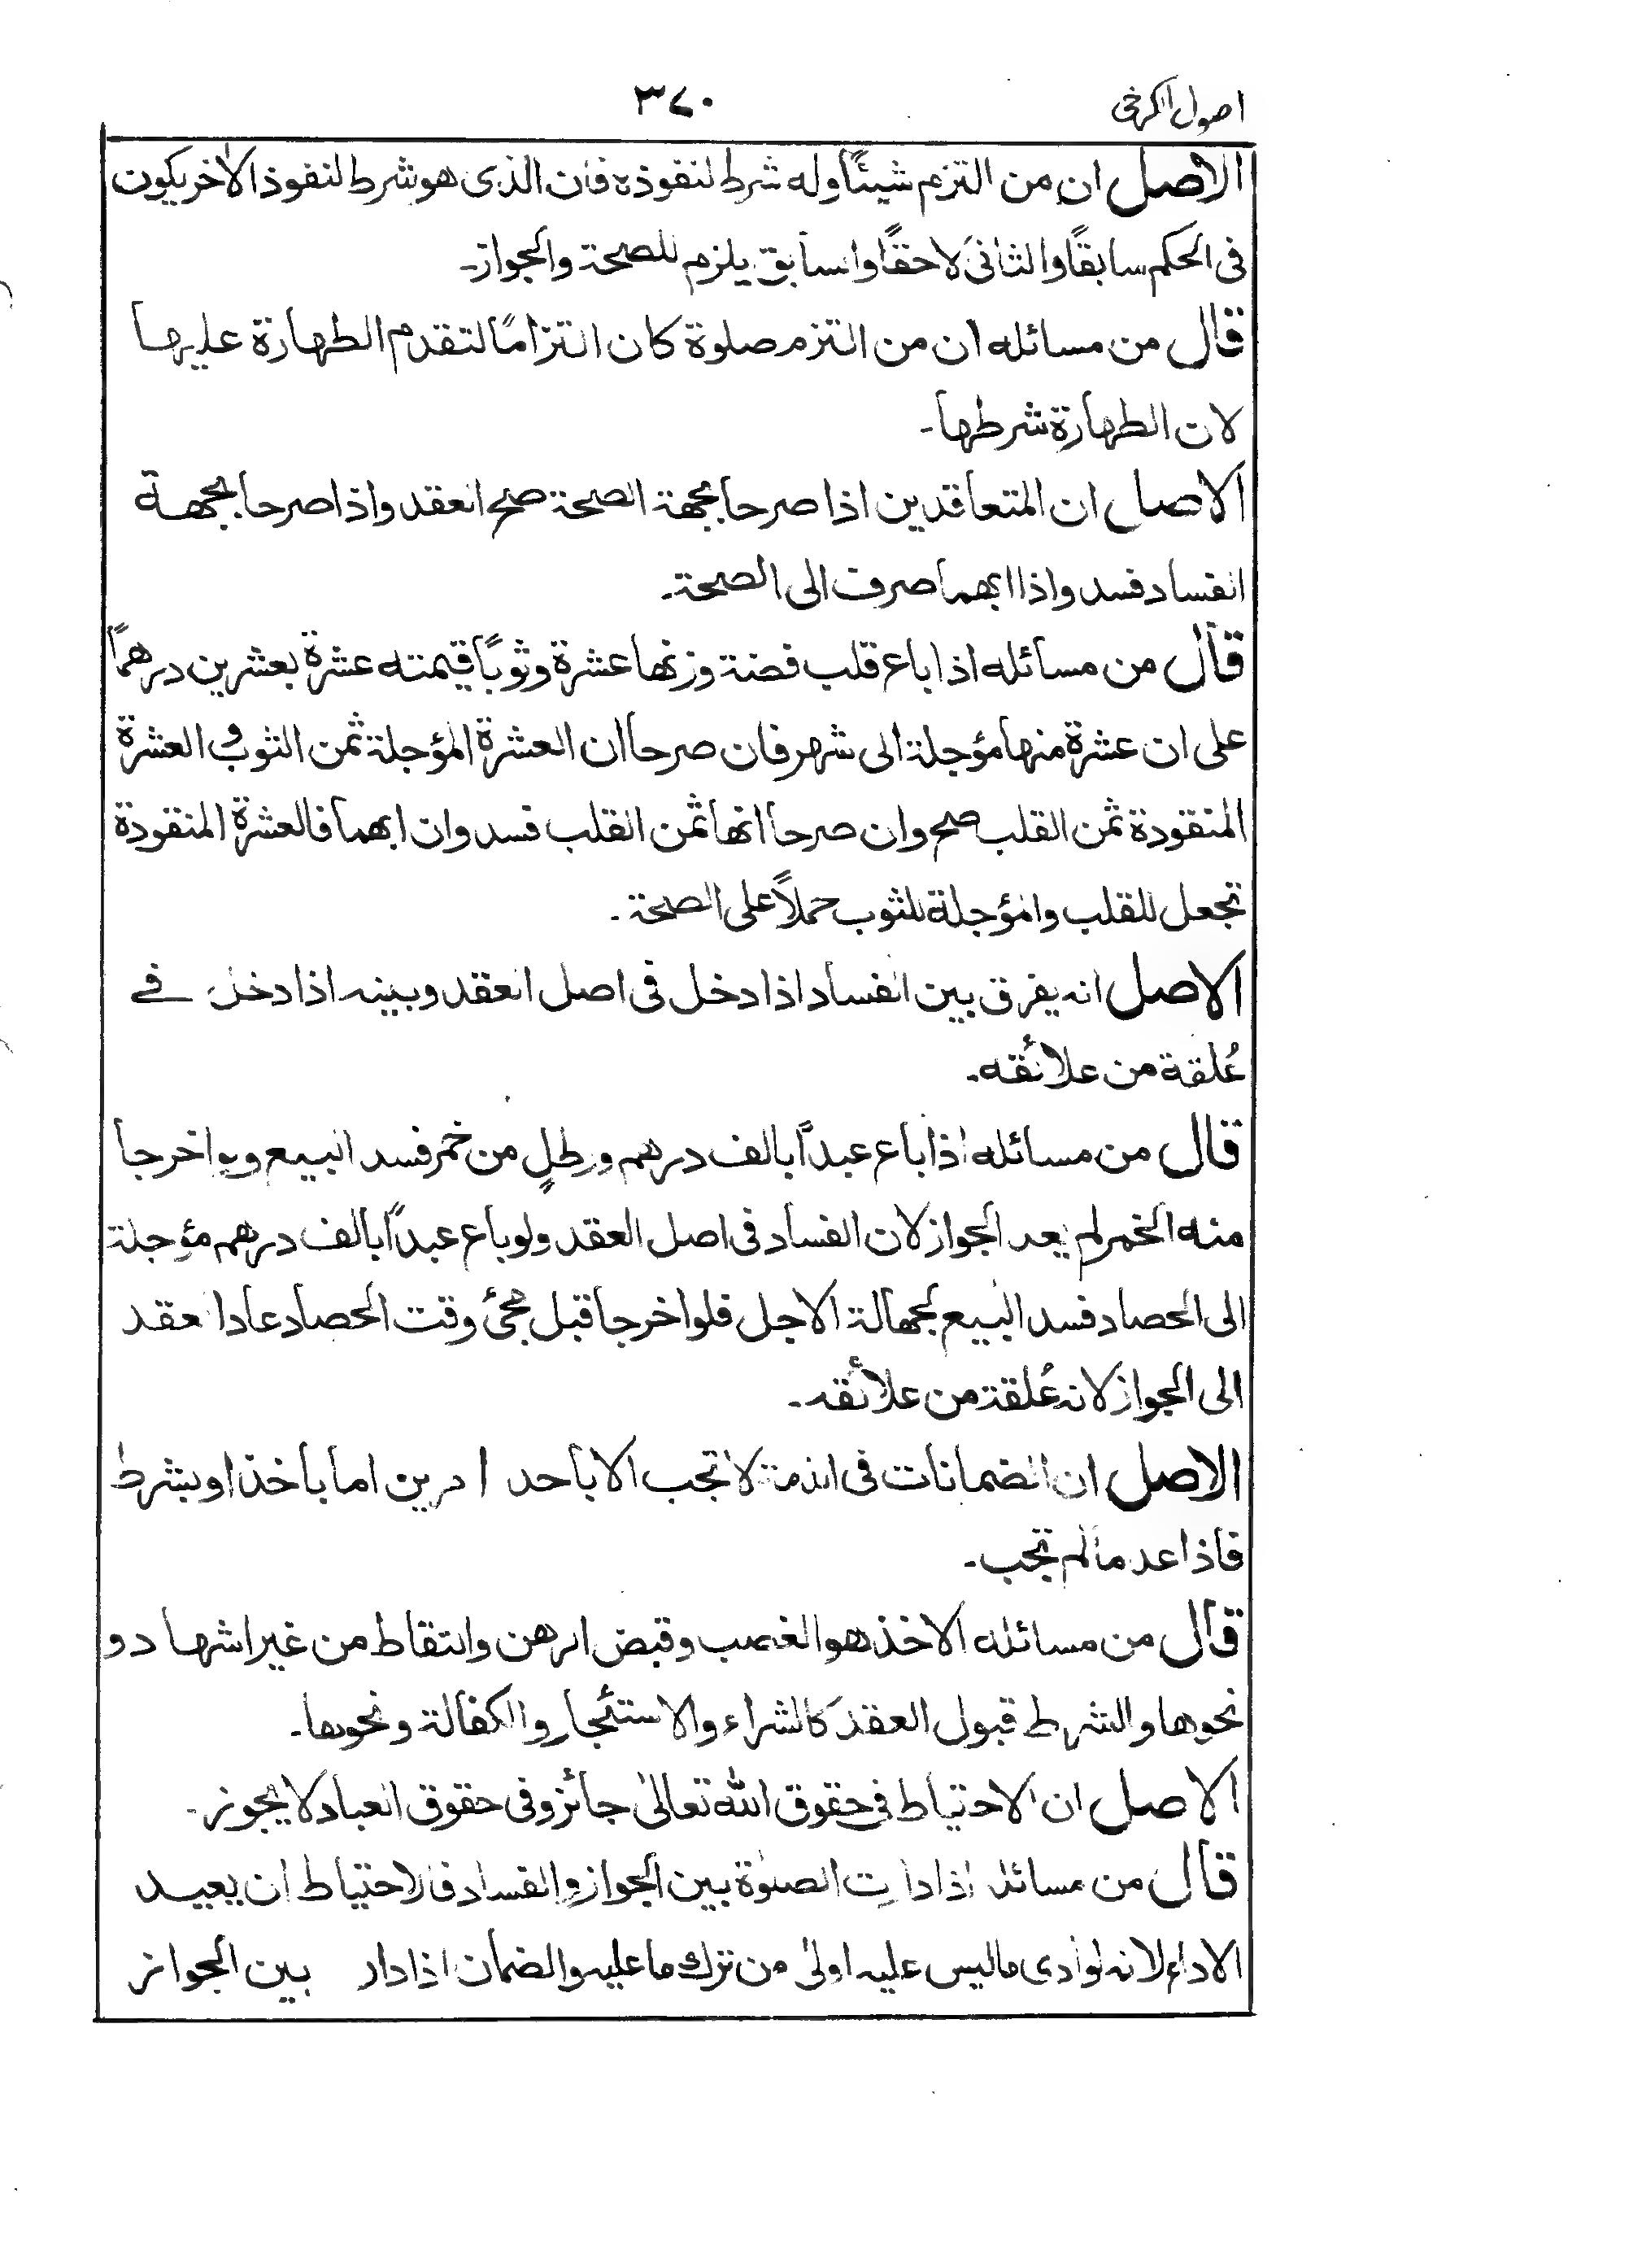 اصول الكرخی
٣٧٠
الاصل ان من التزم شيئًا وله شرط لنفوذه فان الذی هو شرط لنفوذ الاٰخر یکون
فی الحکم سابقًا والثانی لاحقًا والسابق یلزم للصحة والجواز۔
قال من مسائله ان من التزم صلوة کان التزامًا لتقدم الطهارة علیها
لان الطهارة شرطها۔
الاصل ان المتعاقدین اذا صرحا بجهة الصحة صح العقد واذا صرحا بجهة
الفساد فسد واذا ابهما صرف الی الصحة۔
قال من مسائله اذا باع قلب فضة وزنها عشرة وثوبًا قیمته عشرة بعشرین درهمًا
علی ان عشرة منها مؤجلة الی شهر فان صرحا ان العشرة المؤجلة ثمن الثوب و العشرة
المنقودة ثمن القلب صح وان صرحا انها ثمن القلب فسد وان ابهما فالعشرة المنقودة
تجعل للقلب والمؤجلة للثوب حملاً علی الصحة۔
الاصل انه یفرق بین الفساد اذا دخل فی اصل العقد وبینه اذا دخل فے
عُلقة من علائقه۔
قال من مسائله اذا باع عبدًا بالف درهم ورطلٍ من خمر فسد البیع ولو اخرجا
منه الخمر لم یعد الجواز لان الفساد فی اصل العقد ولو باع عبدًا بالف درهم مؤجلة
الی الحصاد فسد البیع لجهالة الاجل فلو اخرجا قبل مجئ وقت الحصاد عاد العقد
الی الجواز لانه عُلقة من علائقه۔
الاصل ان الضمانات فی الذمة لا تجب الا باحد امرین اما باخذ او بشرط
فاذا عدما لم تجب۔
قال من مسائله الاخذ هو الغصب وقبض الرهن والتقاط من غیر اشهاد و
نحوها والشرط قبول العقد کالشراء والاستئجار والکفالة ونحوها۔
الاصل ان الاحتیاط فی حقوق الله تعالیٰ جائز وفی حقوق العباد لا یجوز۔
قال من مسائله اذا دارت الصلوٰة بین الجواز والفساد فالاحتیاط ان یعید
الاداء لانه لو أدی ما لیس علیه اولیٰ من ترك ما علیه والضمان اذا دار بین الجواز